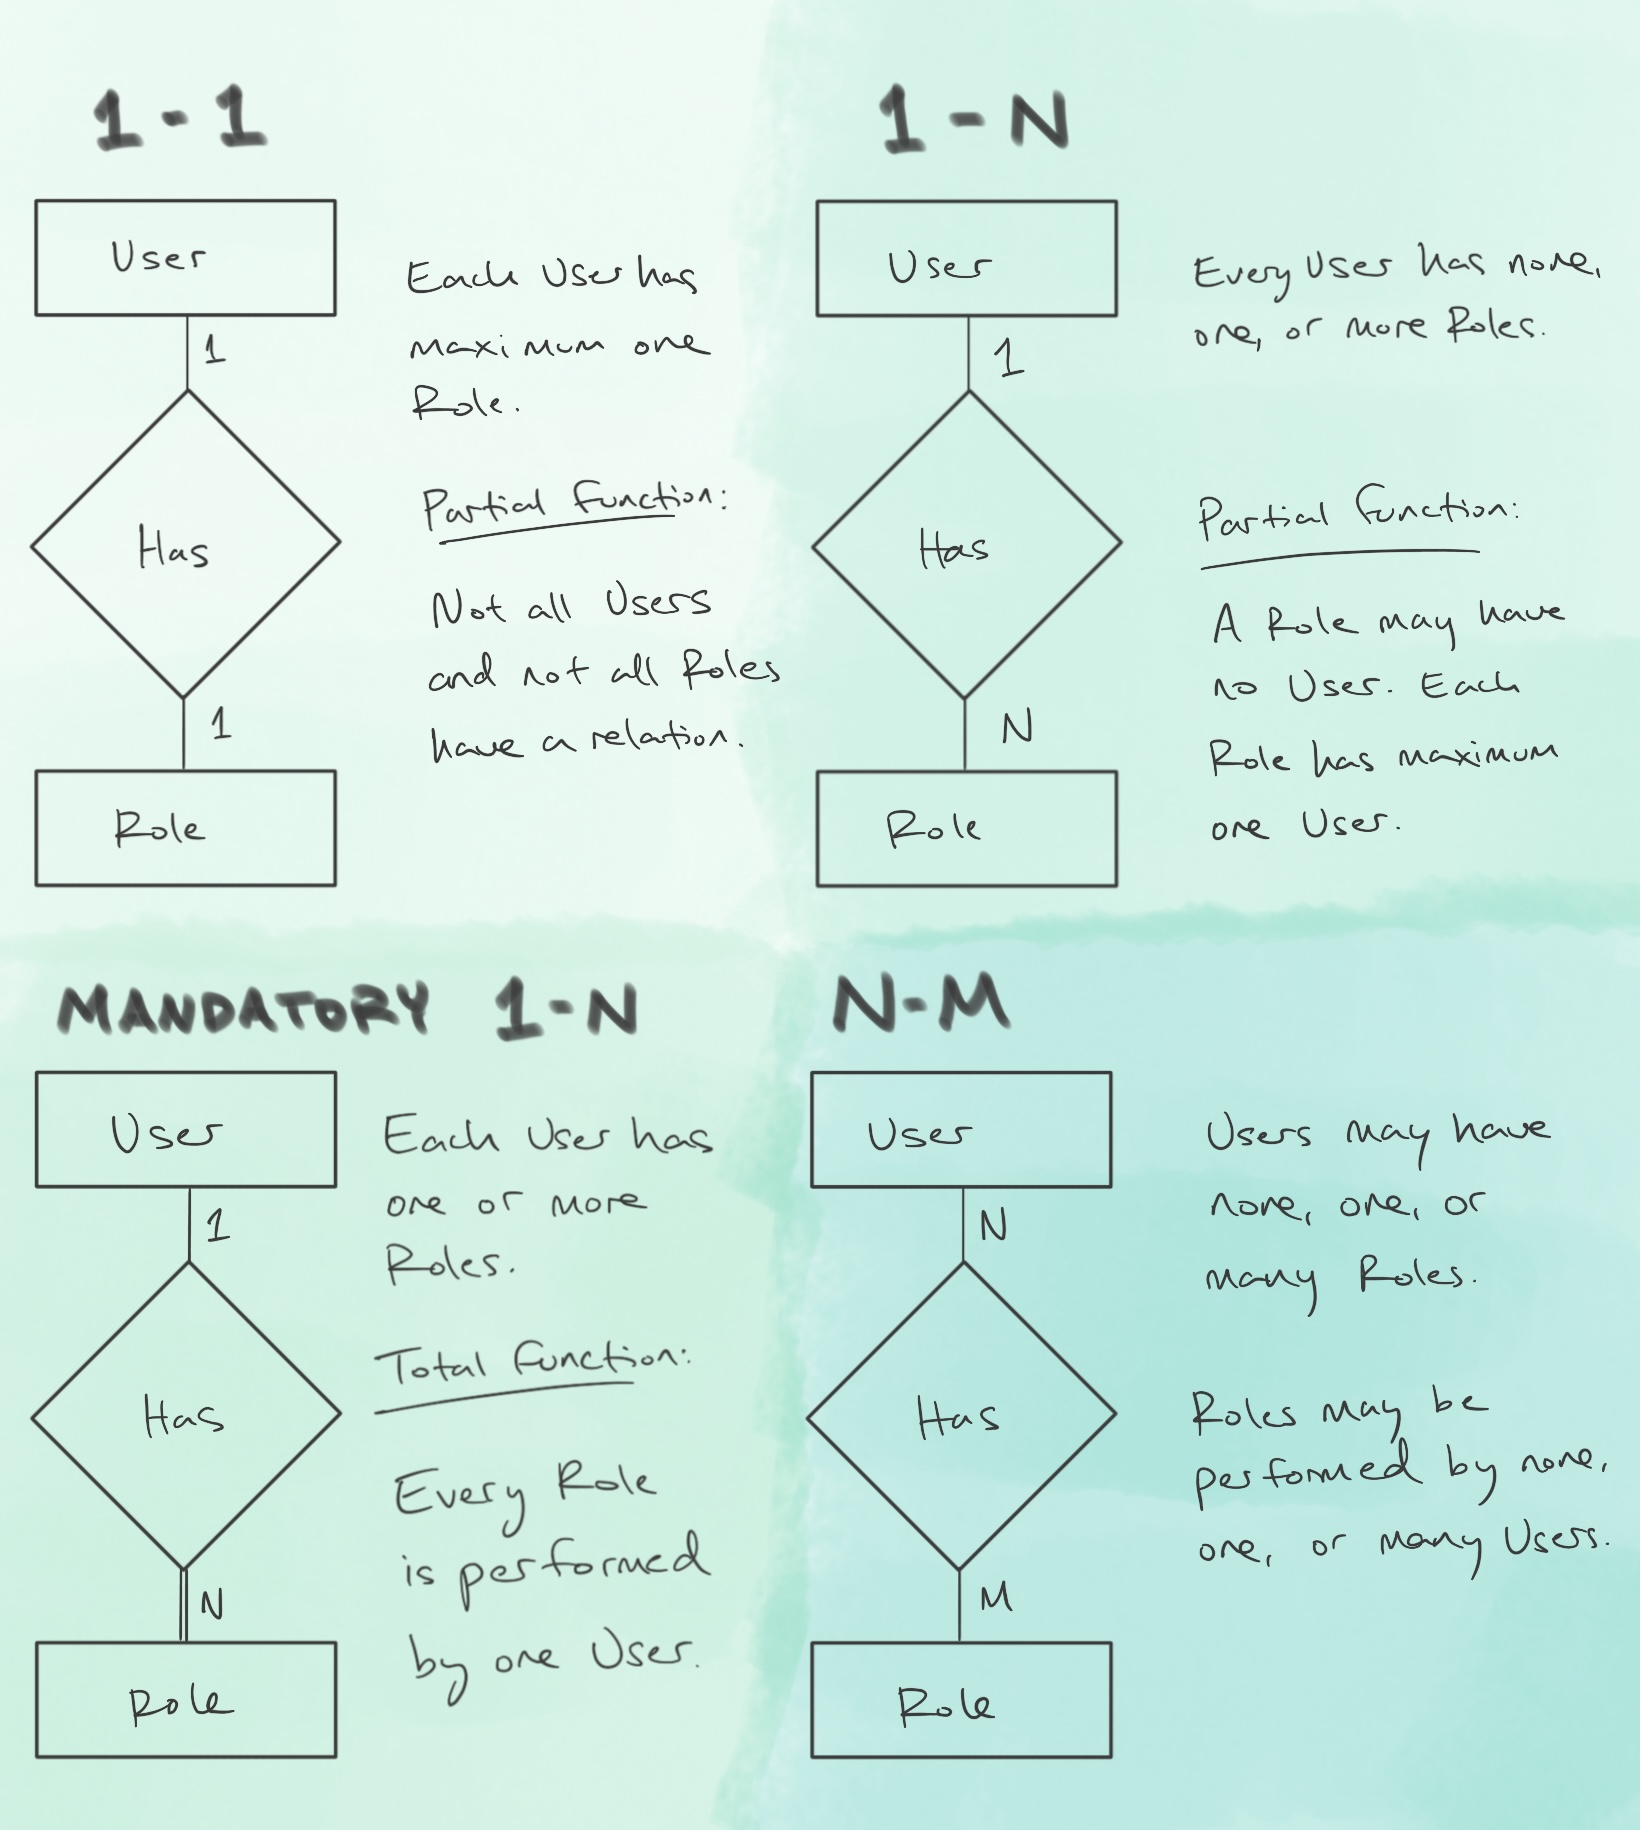 1-1
User
1
Has
1
Role
Each User has
maximum one
Role.
Partial Function:
Not all Users
and not all Roles
have a relation.
1-N
User
1
Has
N
Role
Every User has none,
one, or more Roles.
Partial Function:
A Role may have
no User. Each
Role has maximum
one User.
MANDATORY 1-N
User
1
Has
N
Role
Each User has
one or more
Roles.
Total Function:
Every Role
is performed
by one User.
N-M
User
N
Has
M
Role
Users may have
none, one, or
many Roles.
Roles may be
performed by none,
one, or many Users.